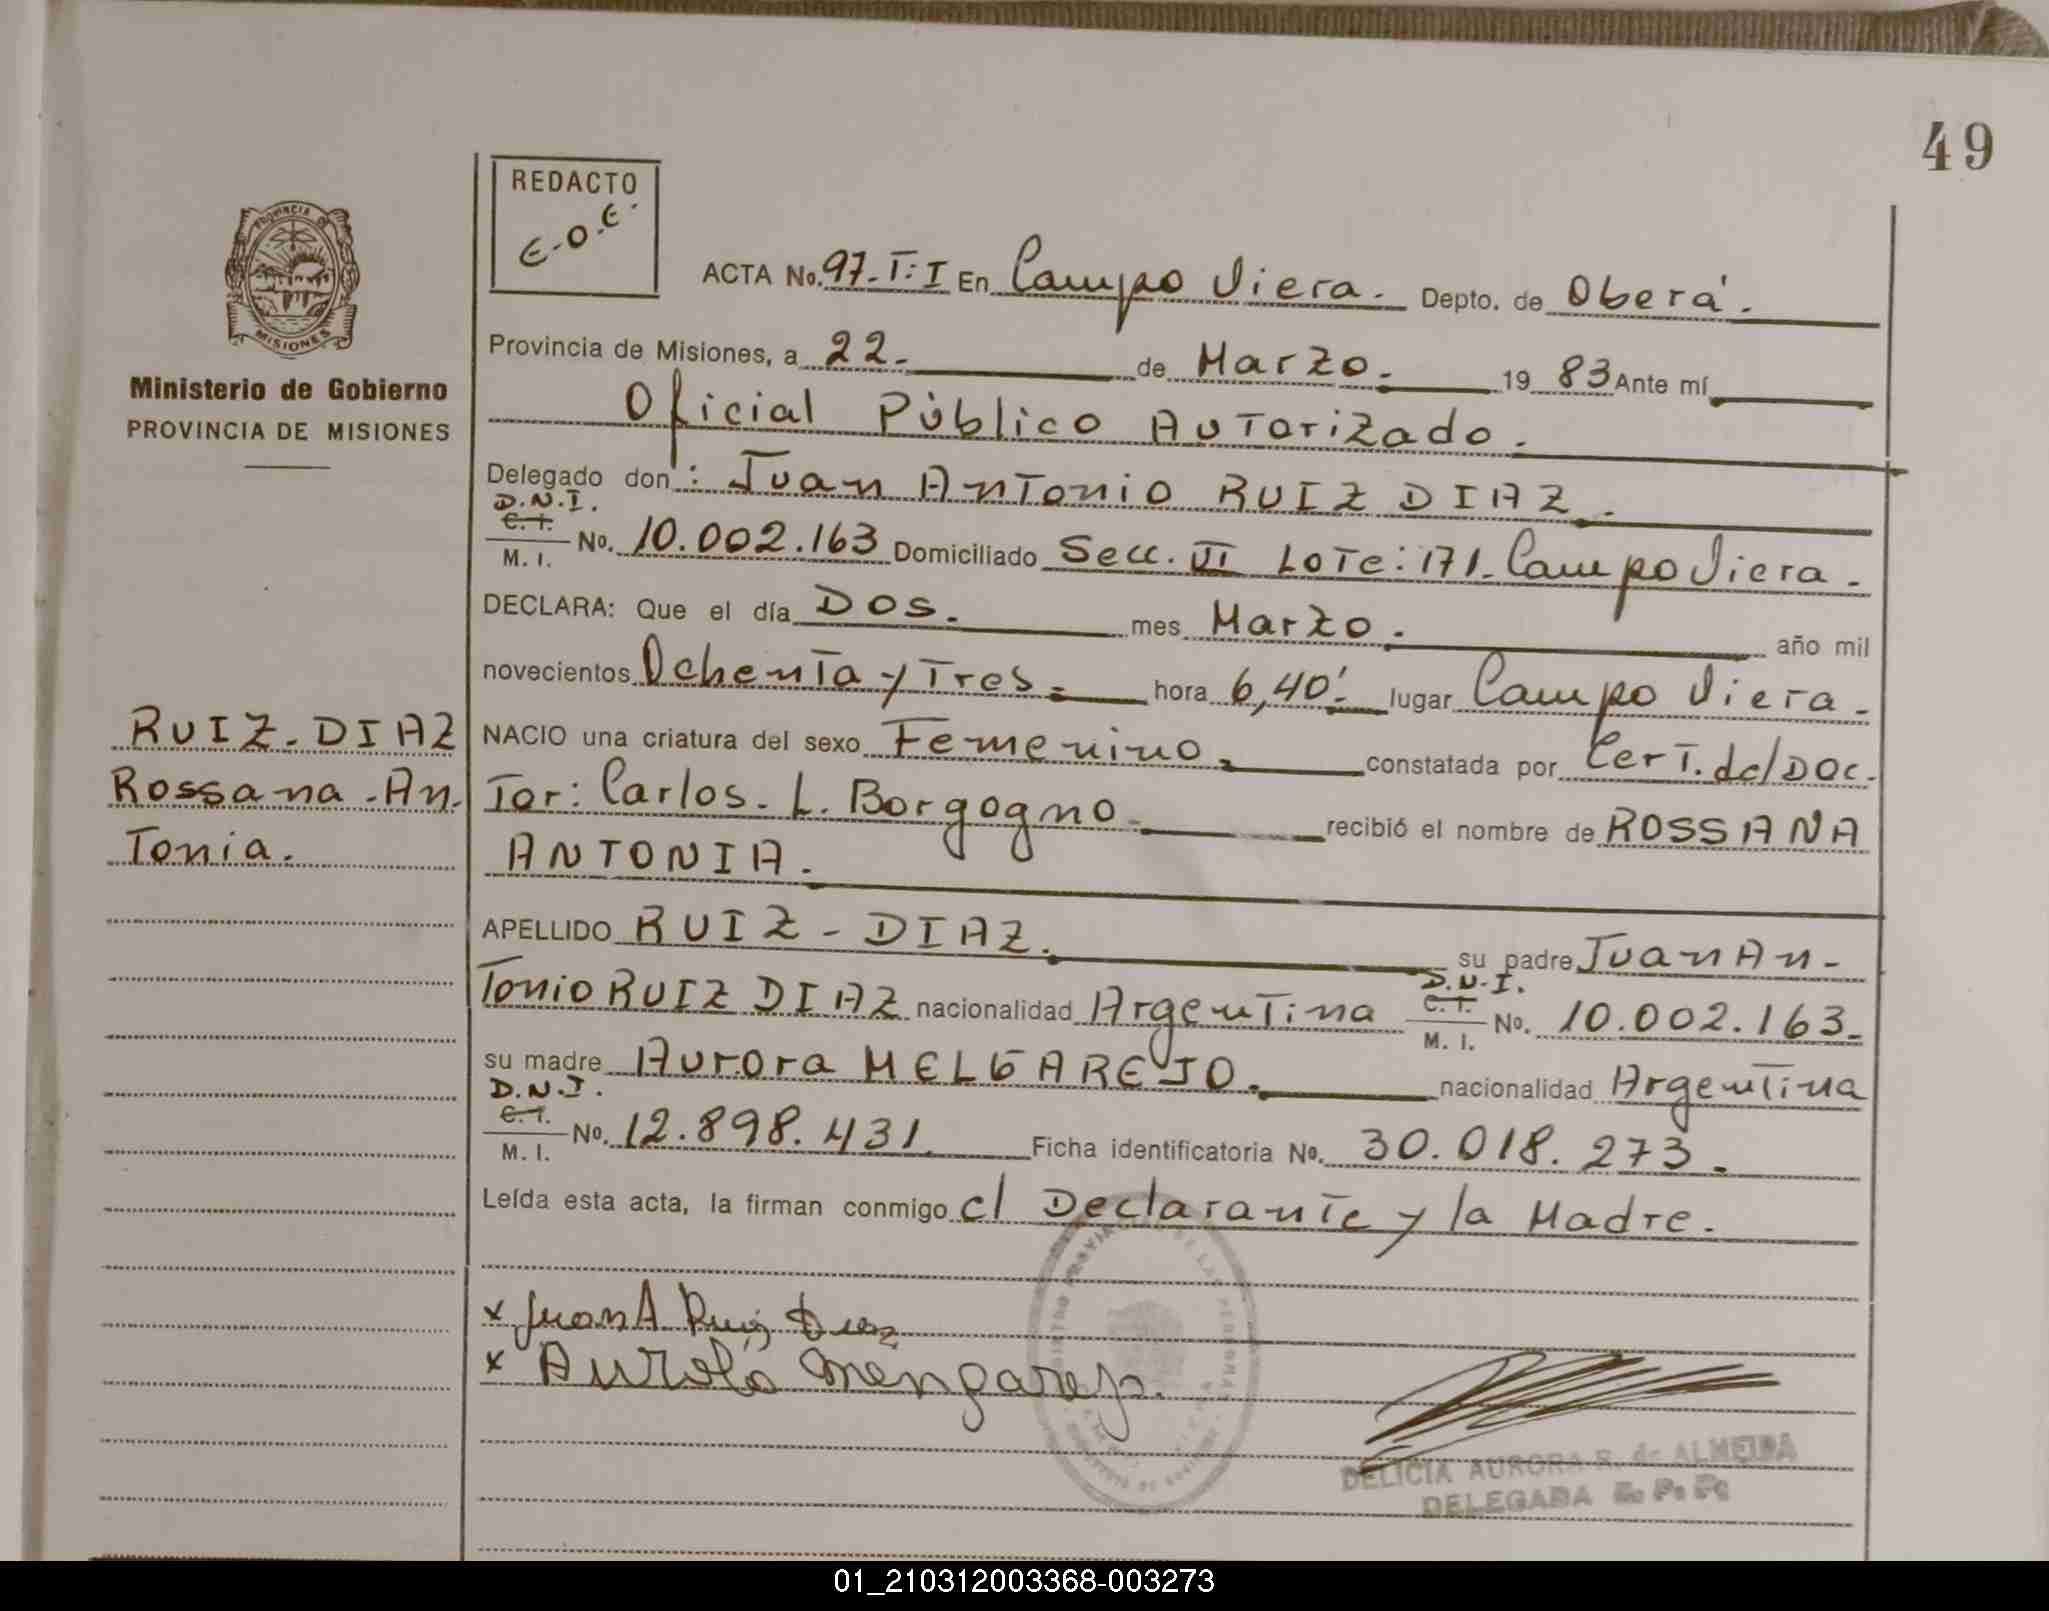 49
REDACTO
E.O.E.
PROVINCIA DE
MISIONES
Ministerio de Gobierno
PROVINCIA DE MISIONES
ACTA No. 97-T:I En Campo Viera. Depto. de Oberá.
Provincia de Misiones, a 22. de Marzo. 19 83 Ante mí
Oficial Público Autorizado.
Delegado don: Juan Antonio RUIZ DIAZ.
D.N.I.
C.I.
M. I. No. 10.002.163 Domiciliado Secc. VI Lote: 171. Campo Viera.
DECLARA: Que el día Dos. mes Marzo. año mil
novecientos Ochenta y Tres. hora 6,40'. lugar Campo Viera.
NACIO una criatura del sexo Femenino. constatada por Cert. del Doc-
tor: Carlos. L. Borgogno. recibió el nombre de ROSSANA
ANTONIA.
RUIZ-DIAZ
Rossana-An-
tonia.
APELLIDO RUIZ-DIAZ. su padre Juan An-
tonio RUIZ DIAZ nacionalidad Argentina D.N.I. C.I. M. I. No. 10.002.163.
su madre Aurora MELGAREJO. nacionalidad Argentina
D.N.I.
C.I.
M. I. No. 12.898.431. Ficha identificatoria No. 30.018.273.
Leída esta acta, la firman conmigo el Declarante y la Madre.
x Juan A Ruiz Diaz
x Aurola Mengarejo.
DELICIA AURORA R. de ALMEIDA
DELEGADA
01_210312003368-003273